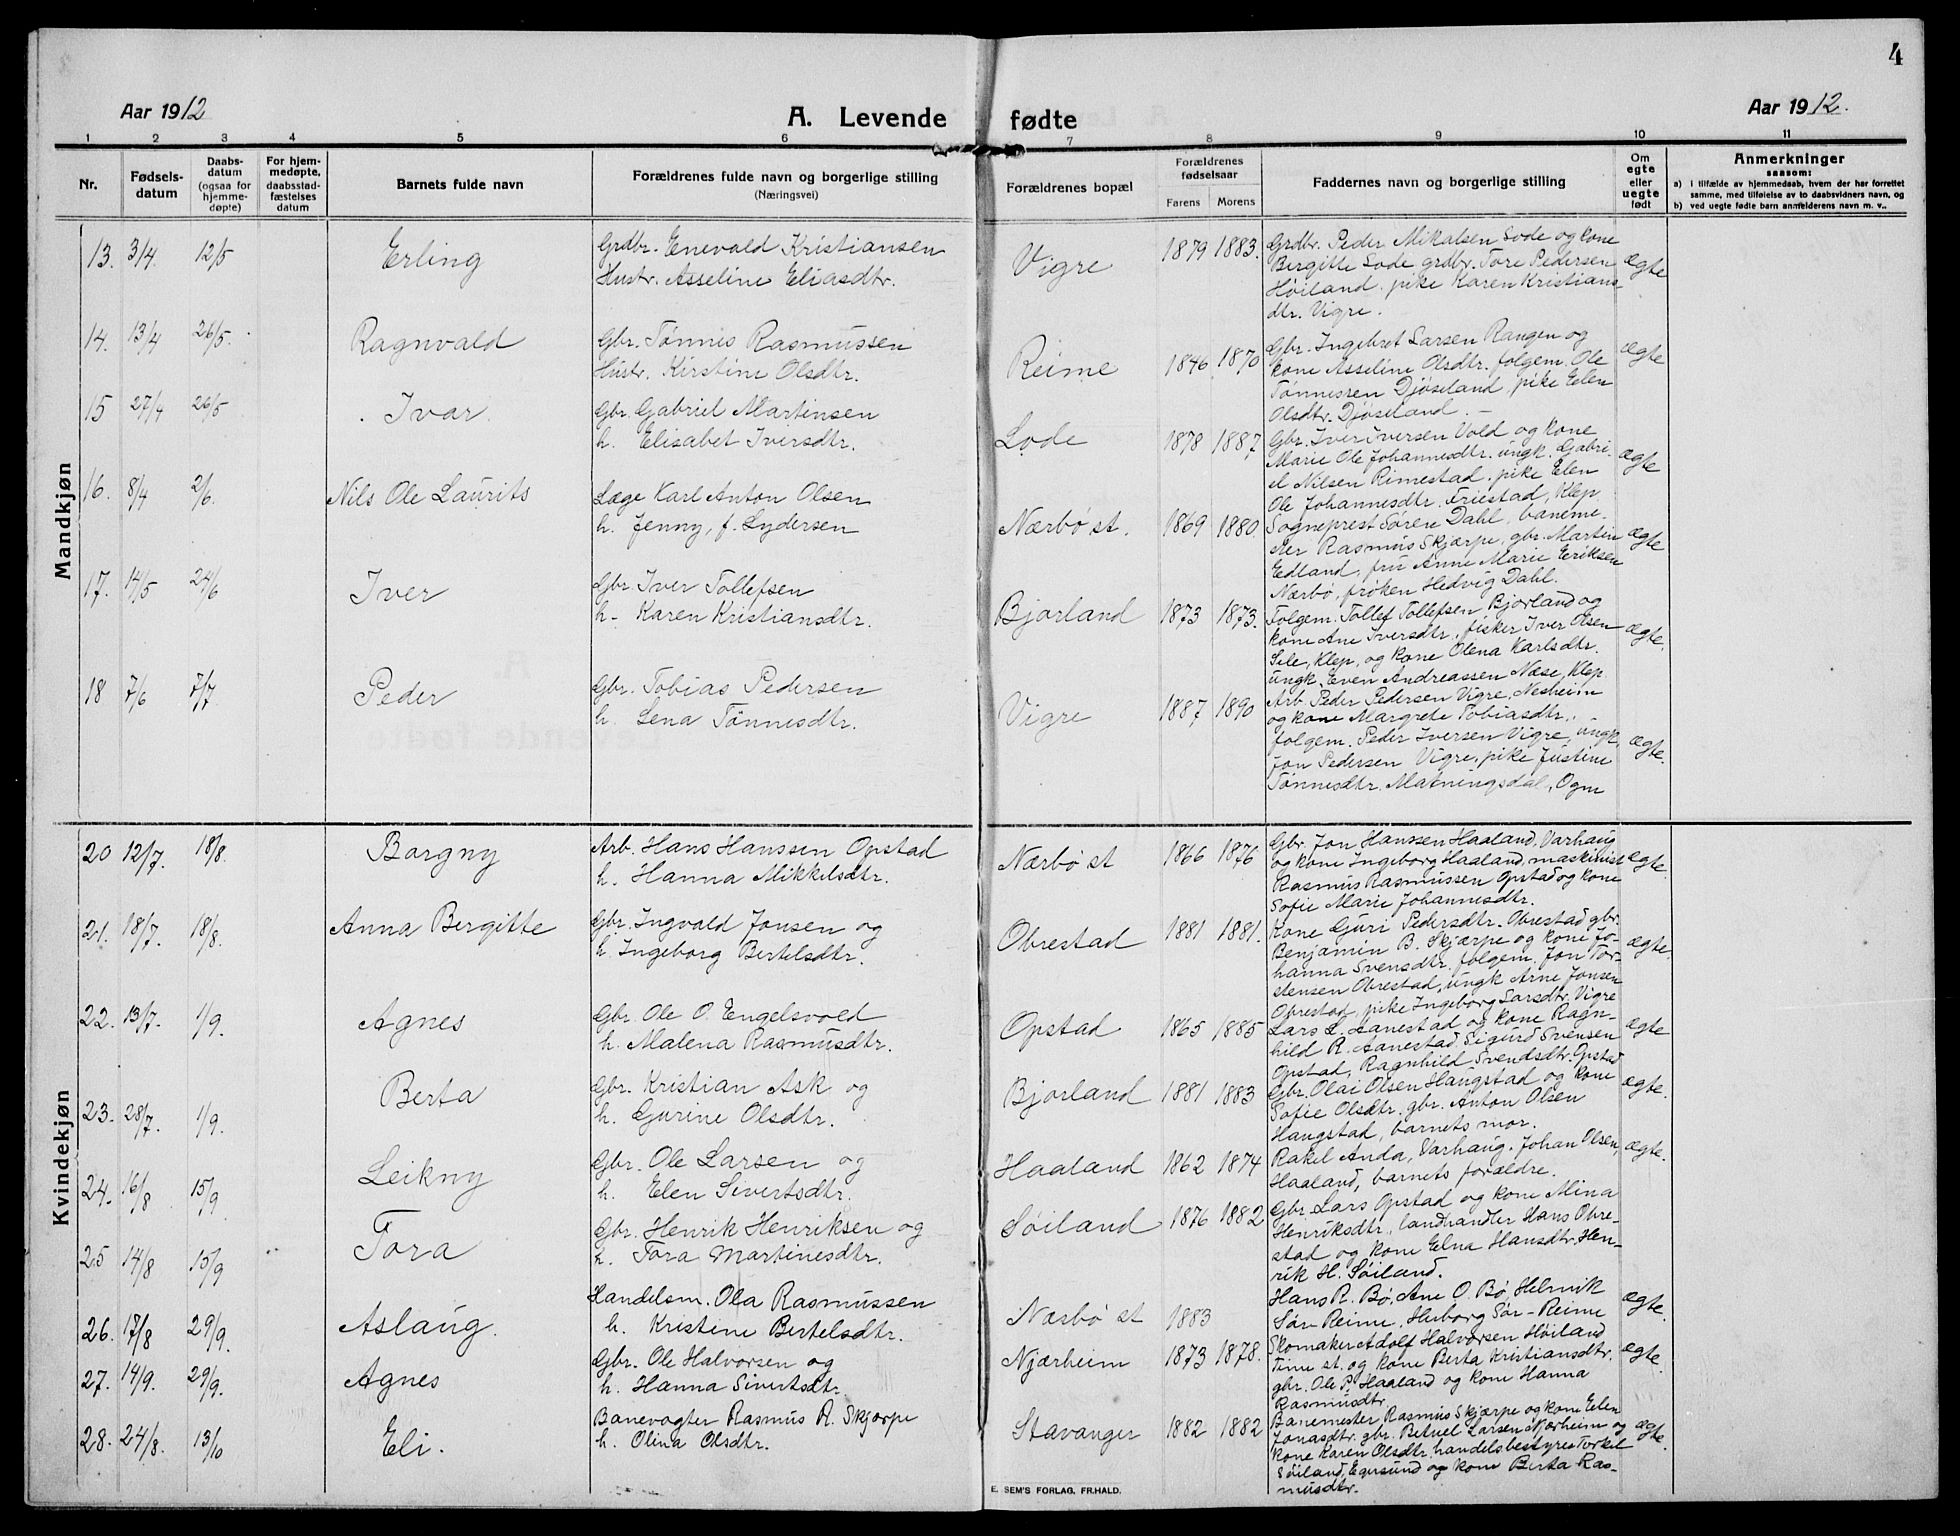 4
Aar 1912
A. Levende fødte
Aar 1912.
1 2 3 4 5 6 7 8 9 10 11
Nr.
Fødsels-
datum
Daabs-
datum
(ogsaa for
hjemme-
døpte)
For hjem-
medøpte,
daabsstad-
fæstelses
datum
Barnets fulde navn
Forældrenes fulde navn og borgerlige stilling
(Næringsvei)
Forældrenes bopæl
Forældrenes
fødselsaar
Farens Morens
Faddernes navn og borgerlige stilling
Om
egte
eller
uegte
født
Anmerkninger
saasom:
a) i tilfælde av hjemmedaab, hvem der har forrettet
samme, med tilføielse av to daabsvidners navn, og
b) ved uegte fødte barn anmelderens navn m. v..
Mandkjøn
13. 3/4 12/5 Erling
Grdbr. Enevald Kristiansen
Hustr. Asseline Eliasdtr.
Vigre 1879 1883.
Grdbr. Peder Mikalsen Lode og kone
Bergitte Lode, grdbr. Tore Pedersen
Høiland, pike Karen Kristians-
dtr. Vigre.
ægte
14. 13/4 26/5. Ragnvald
Gbr. Tønnis Rasmussen
Hustr. Kirstine Olsdtr.
Reime 1846 1870
Gbr. Ingebret Larsen Rangen og
kone Asseline Olsdtr. folgem. Ole
Tønnessen Djøseland, pike Elen
Olsdtr. Djøseland.
ægte
15 27/4 26/5 Ivar
Gbr. Gabriel Martinsen
h. Elisabet Iversdtr.
Lode 1878 1887
Gbr. Iver Iversen Vold og kone
Marie Ole Johannesdtr. ungk. Gabri-
el Nilsen Rimestad, pike Elen
Ole Johannesdtr. Friestad, Klep
ægte
16. 8/4 2/6. Nils Ole Laurits
Læge Karl Anton Olsen
h. Jenny, f. Lydersen
Nærbø st. 1869 1880.
Sogneprest Sören Dahl, baneme-
ster Rasmus Skjærpe, gbr. Martin
Edland, fru Anne Marie Eriksen
Nærbø, frøken Hedvig Dahl.
ægte
17. 14/5 24/6 Iver
Gbr. Iver Tollefsen
h. Karen Kristiansdtr.
Bjorland 1873 1873.
Folgem. Tollef Tollefsen Bjorland og
kone Ane Iversdtr., fisker Iver Olsen
Sele, Klep, og kone Olena Karlsdtr.
ungk. Even Andreassen Næse, Klep
ægte.
18 7/6 7/7 Peder
Gbr. Tobias Pedersen
h. Lena Tønnesdtr.
Vigre 1887 1890
Arb. Peder Pedersen Vigre, Nesheim
og kone Margrete Tobiasdtr.,
folgem. Peder Iversen Vigre, ungk.
Jon Pedersen Vigre, pike Justine
Tønnesdtr. Matningsdal, Ogn
ægte.
Kvindekjøn
20 12/7. 18/8. Borgny
Arb. Hans Hanssen Opstad
h. Hanna Mikkelsdtr.
Nærbø st 1866 1876
Gbr. Jon Hanssen Haaland, Varhaug
og kone Ingeborg Haaland, maskinist
Rasmus Rasmussen Opstad og kone
Sofie Marie Johannesdtr.
ægte.
21. 18/7. 18/8. Anna Bergitte
Gbr. Ingvald Jonsen og
h. Ingeborg Bertelsdtr.
Obrestad 1881 1881.
Kone Guri Pedersdtr. Obrestad gbr.
Benjamin B. Skjærpe og kone Jo-
hanna Svensdtr. folgem. Jon Tor-
stensen Obrestad, ungk Arne Jonsen
Obrestad, pike Ingeborg Larsdtr. Vigre
ægte.
22. 13/7. 1/9. Agnes
Gbr. Ole O. Engelsvold
h. Malena Rasmusdtr.
Opstad 1865 1885
Lars L. Aanestad og kone Ragn-
hild R. Aanestad, Sigurd Svensen
Opstad, Ragnhild Svendsdtr. Opstad
ægte
23. 28/7. 1/9. Berta
Gbr. Kristian Ask og
h. Gurine Olsdtr.
Bjorland 1881 1883
Gbr. Olai Olsen Haugstad og kone
Sofie Olsdtr. gbr. Anton Olsen
Haugstad, barnets mor.
ægte.
24. 16/8 15/9 Leikny
Gbr. Ole Larsen og
h. Elen Sivertsdtr.
Haaland 1862 1874
Rakel Anda, Varhaug. Johan Olsen,
Haaland, barnets forældre.
ægte.
25 14/8 15/9 Tora
Gbr. Henrik Henriksen og
h. Tora Martinesdtr.
Søiland 1876 1882
Gbr. Lars Opstad og kone Mina
Henriksdtr., landhandler Hans Obre-
stad og kone Elna Hansdtr. Hen-
rik H. Søiland.
26. 17/8 29/9. Aslaug.
Handelsm. Ola Rasmussen
h. Kristine Bertelsdtr.
Nærbø st 1883
Hans R. Bø, Ane O. Bø, Helmik
Sør-Reime, Herborg Sør-Reime
ægte.
27. 14/9. 29/9. Agnes
Gbr. Ole Halvorsen og
h. Hanna Sivertsdtr.
Njærheim 1873 1878.
Skomaker Adolf Halvorsen Høiland
Time st. og kone Berta Kristiansdtr.
gbr. Ole P. Haaland og kone Hanna
Rasmusdtr.
ægte.
28. 24/8. 13/10 Eli.
Banevogter Rasmus R. Skjærpe
h. Olina Olsdtr.
Stavanger 1882 1882
Banemester Rasmus Skjærpe og kone Elen
Jonasdtr. gbr. Betuel Larsen Skjærheim og
kone Karen Olsdtr. handelsbestyrer Torkel
Søiland, Egersund og kone Berta Ras-
musdtr.
ægte.
E. SEM'S FORLAG, FR.HALD.